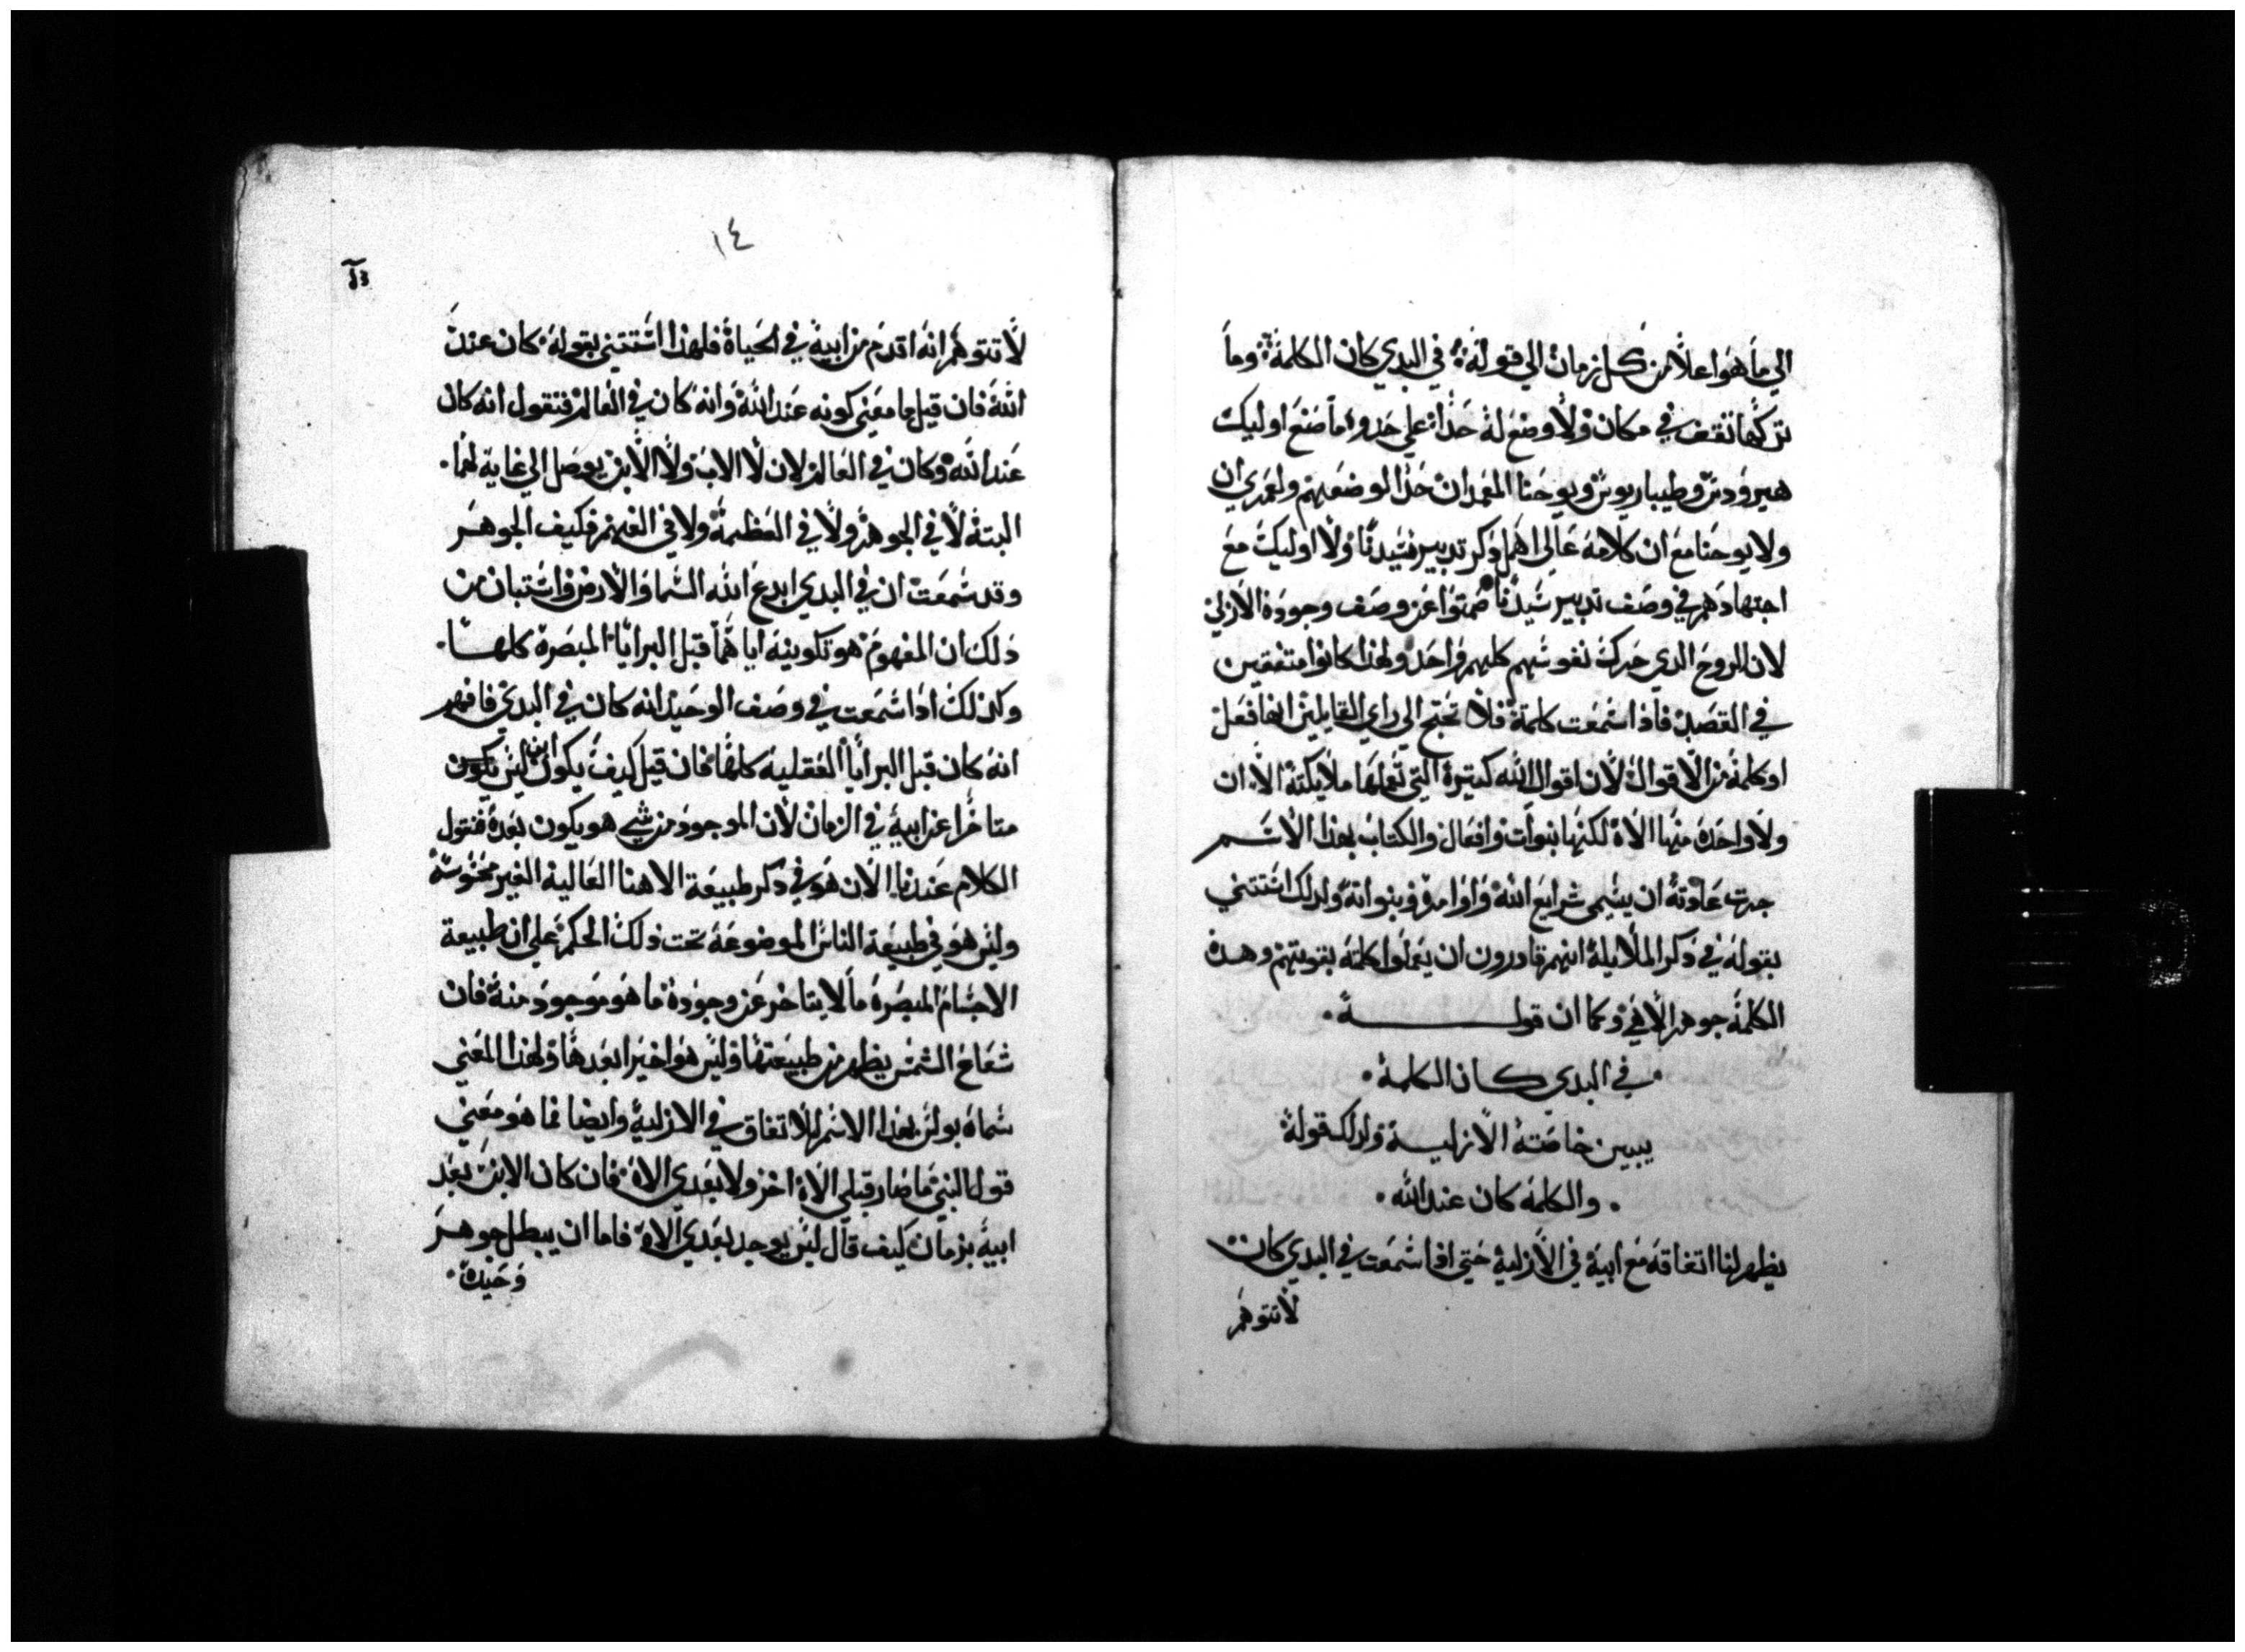 الي ما هو اعلا من كل زمان الي قوله في البدي كان الكلمة وما
تركها تقف في مكان ولا وضع له حدا علي حدو ما صنع اوليك
هيرودس وطيباريوس ويوحنا المعمدان حدا لوضعهم ولعمري ان
ولا يوحنا مع ان كلامه عالي اهمل ذكر تدبير سيدنا ولا اوليك مع
اجتهادهم في وصف تدبير سيدنا صمتوا عن وصف وجوده الازلي
لان الروح الدي حرك نفوسهم كلهم واحد ولهدا كانوا متفقين
في القصد فاذا سمعت كلمة فلا تحتج الي راي القايلين انها فعل
او كلمة من الاقوال لان اقوال الله كتيرة التي تعملها ملايكته الا ان
ولا واحدة منها الاه لكنها نبوات وافعال والكتاب بهدا الاسم
جرت عادته ان يسمي شرايع الله واوامره ونبواته ولدلك استتني
بقوله في دكر الملايكة انهم قادرون ان يعملوا كلمته بقوتهم وهده
الكلمة جوهر الاقي وكما ان قولـــه
في البدي كان الكلمة
يبين خاصته الازلية ولدلك قوله
والكلمة كان عند الله
يظهر لنا اتفاقه مع ابيه في الازلية حتي اذا سمعت في البدي كان
لا تتوهم
١٤
لا تتوهم انه اقدم من ابيه في الحياة فلهذا استتني بقوله كان عند
الله فان قيل ما معني كونه عند الله وانه كان في العالم فنقول انه كان
عند الله وكان في العالم لان لا الاب ولا الابن يوصل الي غاية لهما
البتة لا في الجوهر ولا في العظمة ولا في الفهم فكيف الجوهر
وقد سمعت ان في البدي ابدع الله السما والارض واستبان من
دلك ان المفهوم هو تكوينه اياهما قبل البرايا المبصرة كلها
وكدلك ادا سمعت في وصف الوحيد انه كان في البدي فافهم
انه كان قبل البرايا العقلية كلها فان قيل كيف يكون ابن ليس يكون
متاخرا عن ابيه في الزمان لان الموجود من شي هو يكون بعده فنقول
الكلام عندنا الان هو في دكر طبيعة الاهنا العالية الغير محسوسة
وليس هو في طبيعة الناس الموضوعة تحت ذلك الحكم علي ان طبيعة
الاجسام المبصرة ما لا يتاخر عن وجوده ما هو موجود منه فان
شعاع الشمس يظهر من طبيعتها وليس هو اخيرا بعدها ولهذا المعني
سماه بولس بهدا الاسم لاتفاق في الازلية وايضا فما هو معني
قول النبي ما صار قبلي الاه اخر ولا بعدي الاه فان كان الابن بعد
ابيه بزمان كيف قال ليس يوجد بعدي الاه فاما ان يبطل جوهر
وحيده